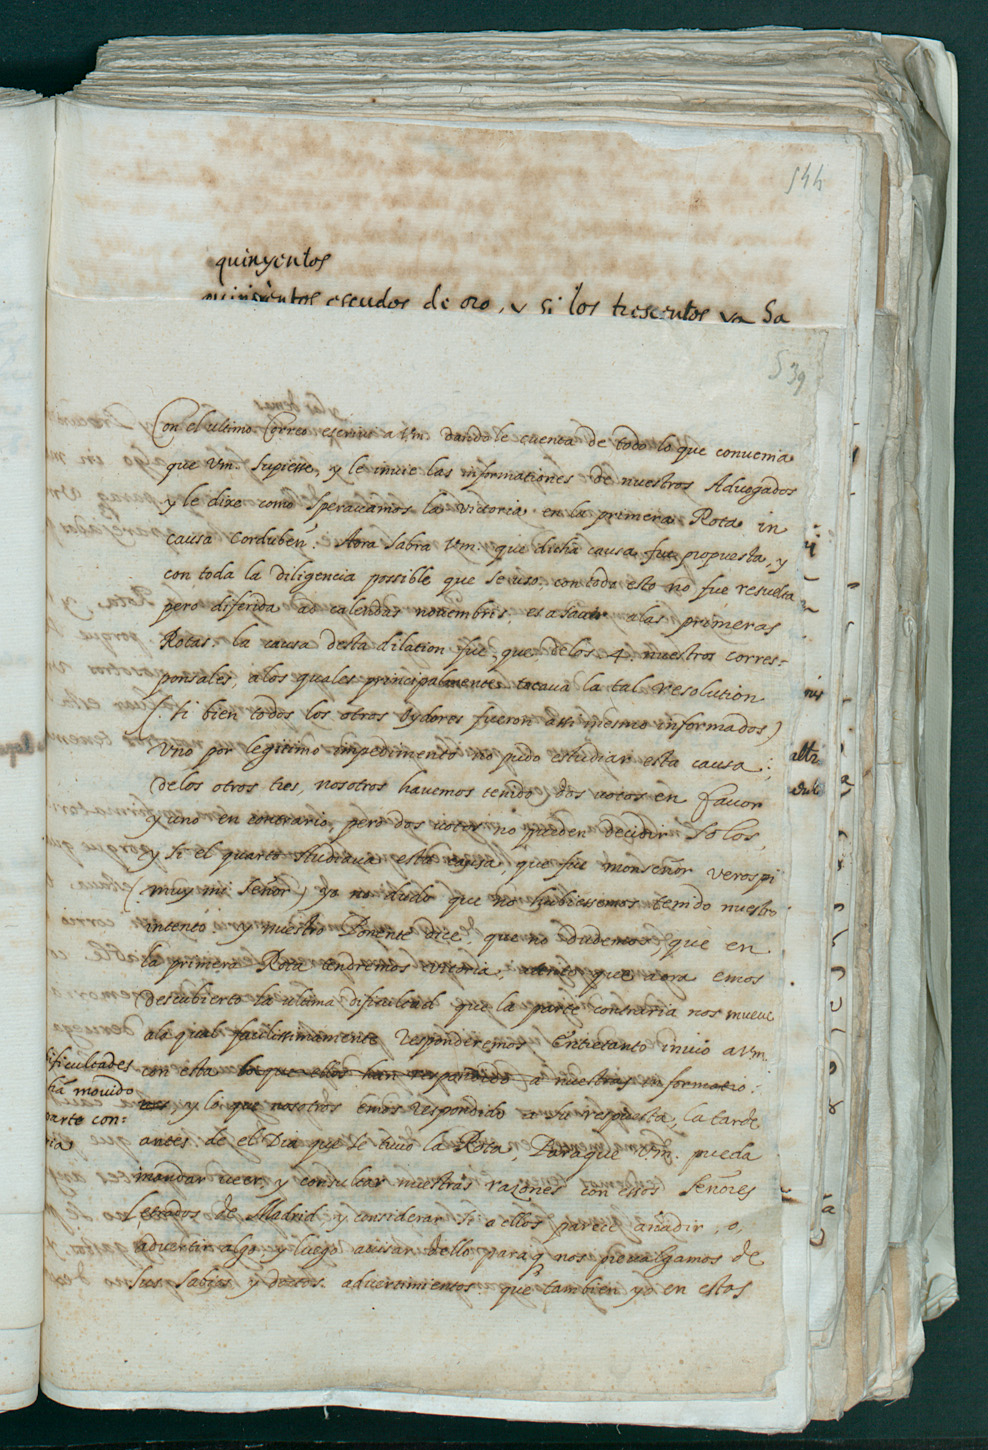 544
quinyentos
quinientos escudos de oro, y si los trescentos ya Sa
539
Con el ultimo Correo escrivi a Vm. dandole cuenta de todo lo que convenia
que Vm. supiesse, y le invie las informationes de nuestros Advogados
y le dixe como speravamos la victoria en la primera Rota in
causa Corduben. Aora sabra Vm. que dicha causa fue propuesta, y
con toda la diligencia possible que se uso, con todo esto no fue resuelta
pero diferida ad calendas novembris, es a saver a las primeras
Rotas: la causa desta dilation fue, que delos 4. nuestros corres=
ponsales, a los quales principalmente tocava la tal resolution
(si bien todos los otros oydores fueron assi mesmo informados)
Uno por legitimo impedimento no pudo estudiar esta causa;
delos otros tres, nosotros havemos tenido dos votos en favor
y uno en contrario, pero dos votos no pueden decidir solos,
y si el quarto studiava esta causa, que fue monseñor Verospi
(muy mi señor) yo no dudo que no hubiessemos tenido nuestro
intento: y nuestro Ponente dice, que no dudemos, que en
la primera Rota tendremos vitoria, atento que aora emos
descubierto la ultima dificultad que la parte contraria nos mueve
ala qual facilissimamente responderemos. Entretanto invio a Vm.
con esta lo que ellos han respondido a nuestras informatio=
nes, y lo que nosotros emos respondido a su respuesta, la tarde
antes de el Dia que se tuvo la Rota, Paraque Vm. pueda
mandar veer, y consultar nuestras razones con essos señores
Letrados de Madrid y considerar si a ellos parece añadir, o,
advertir algo, y luego avisar dello para q nos prevalgamos de
sus sabios y doctos advertimientos: que tambien yo en estos
dificultades
ha movido
parte con=